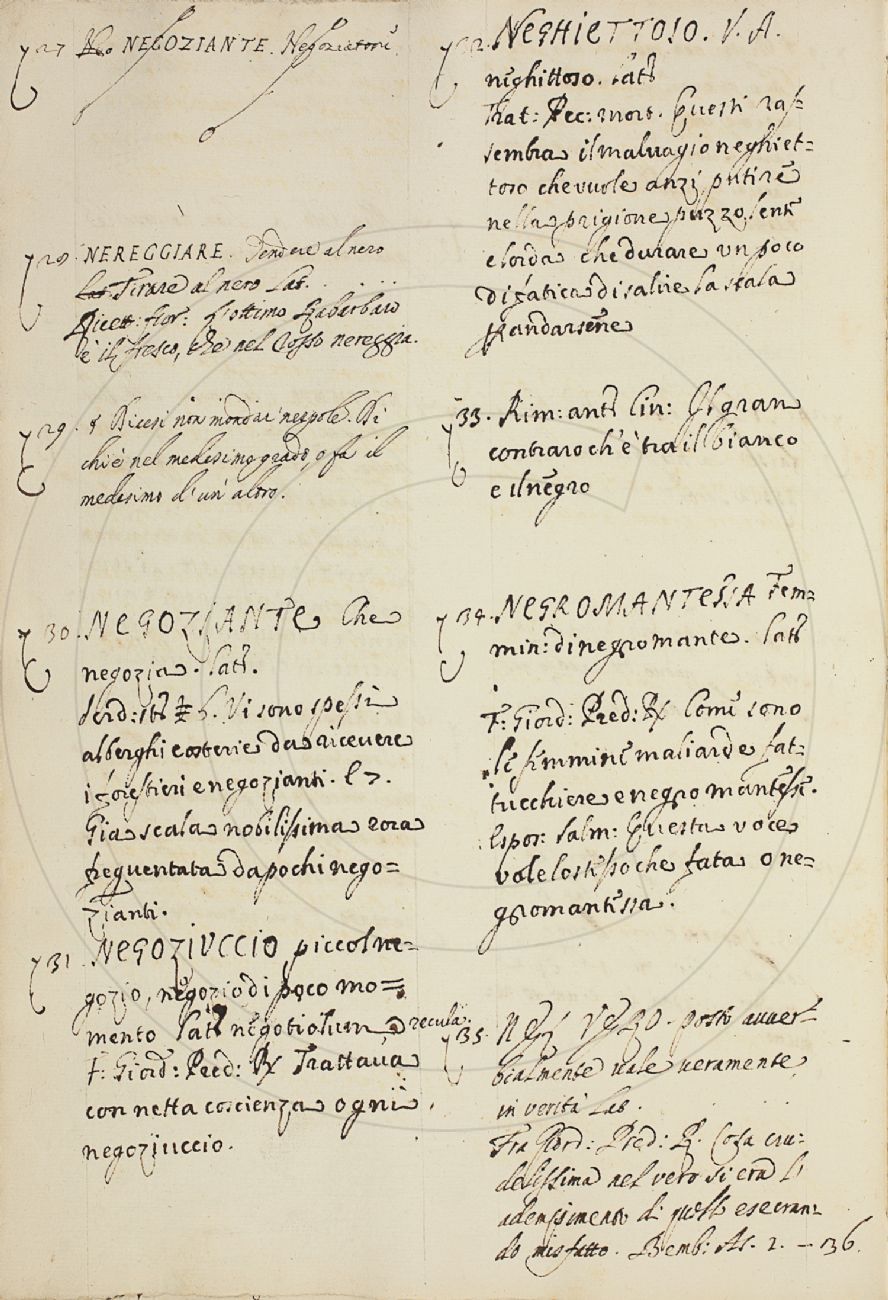 27 NEGOZIANTE. Negoziatore
28. NEREGGIARE. Tendere al nero
Tirare al nero Lat.
Ricett: fior: l'ottimo Rabarbaro
è il fresco, che nel rosso nereggia.
29. § Dicesi non mondar nespole. Di
chi è nel medesimo grado, o fa il
medesimo d'un' altro.
30. NEGOZIANTE Che
negozia. Lat.
Serd: st. 6. Vi sono spessi
alberghi e osterie da ricevere
i forestieri e negozianti. E 7.
Gia scala nobilissima e ora
frequentata da pochi nego=
zianti.
31. NEGOZIUCCIO piccol ne=
gozio, negozio di poco mo=
mento Lat. negotiolum, recula.
F: Giord: Pred: R. Trattava
con netta coscienza ogni
negoziuccio.
32. NEGHIETTOSO. V. A.
neghittoso. Lat.
Trat: Pec: mort. Questi ras=
sembra il malvagio neghiet=
toso che vuole anzi putire
nella prigione puzzolente
e lorda che durare un poco
di fatica di salire la scala
per andarsene
33. Rim: ant. Cin: Il gran
contraro ch'è tra il bianco
e il negro
34. NEGROMANTESSA Fem=
min: di negromante. Lat.
F: Giord: Pred: R. Come sono
le femmine maliarde fat=
tucchiere e negromantesse.
Espor: Salm: Questa voce
vole lo stesso che fata o ne=
gromantessa.
35. Nel Vero. posto avver=
bialmente vale veramente,
in verità Lat.
Fra Giord: Pred: R. Cosa cru=
delissima nel vero si era l'
adempimento di questo esecran=
do misfatto. Bemb: As. 2. – 136.